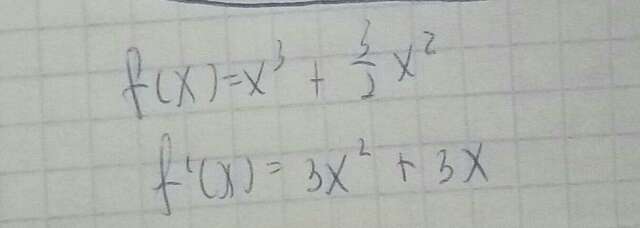 f(x)=x³ + 3/2 x²
f'(x) = 3x² + 3x